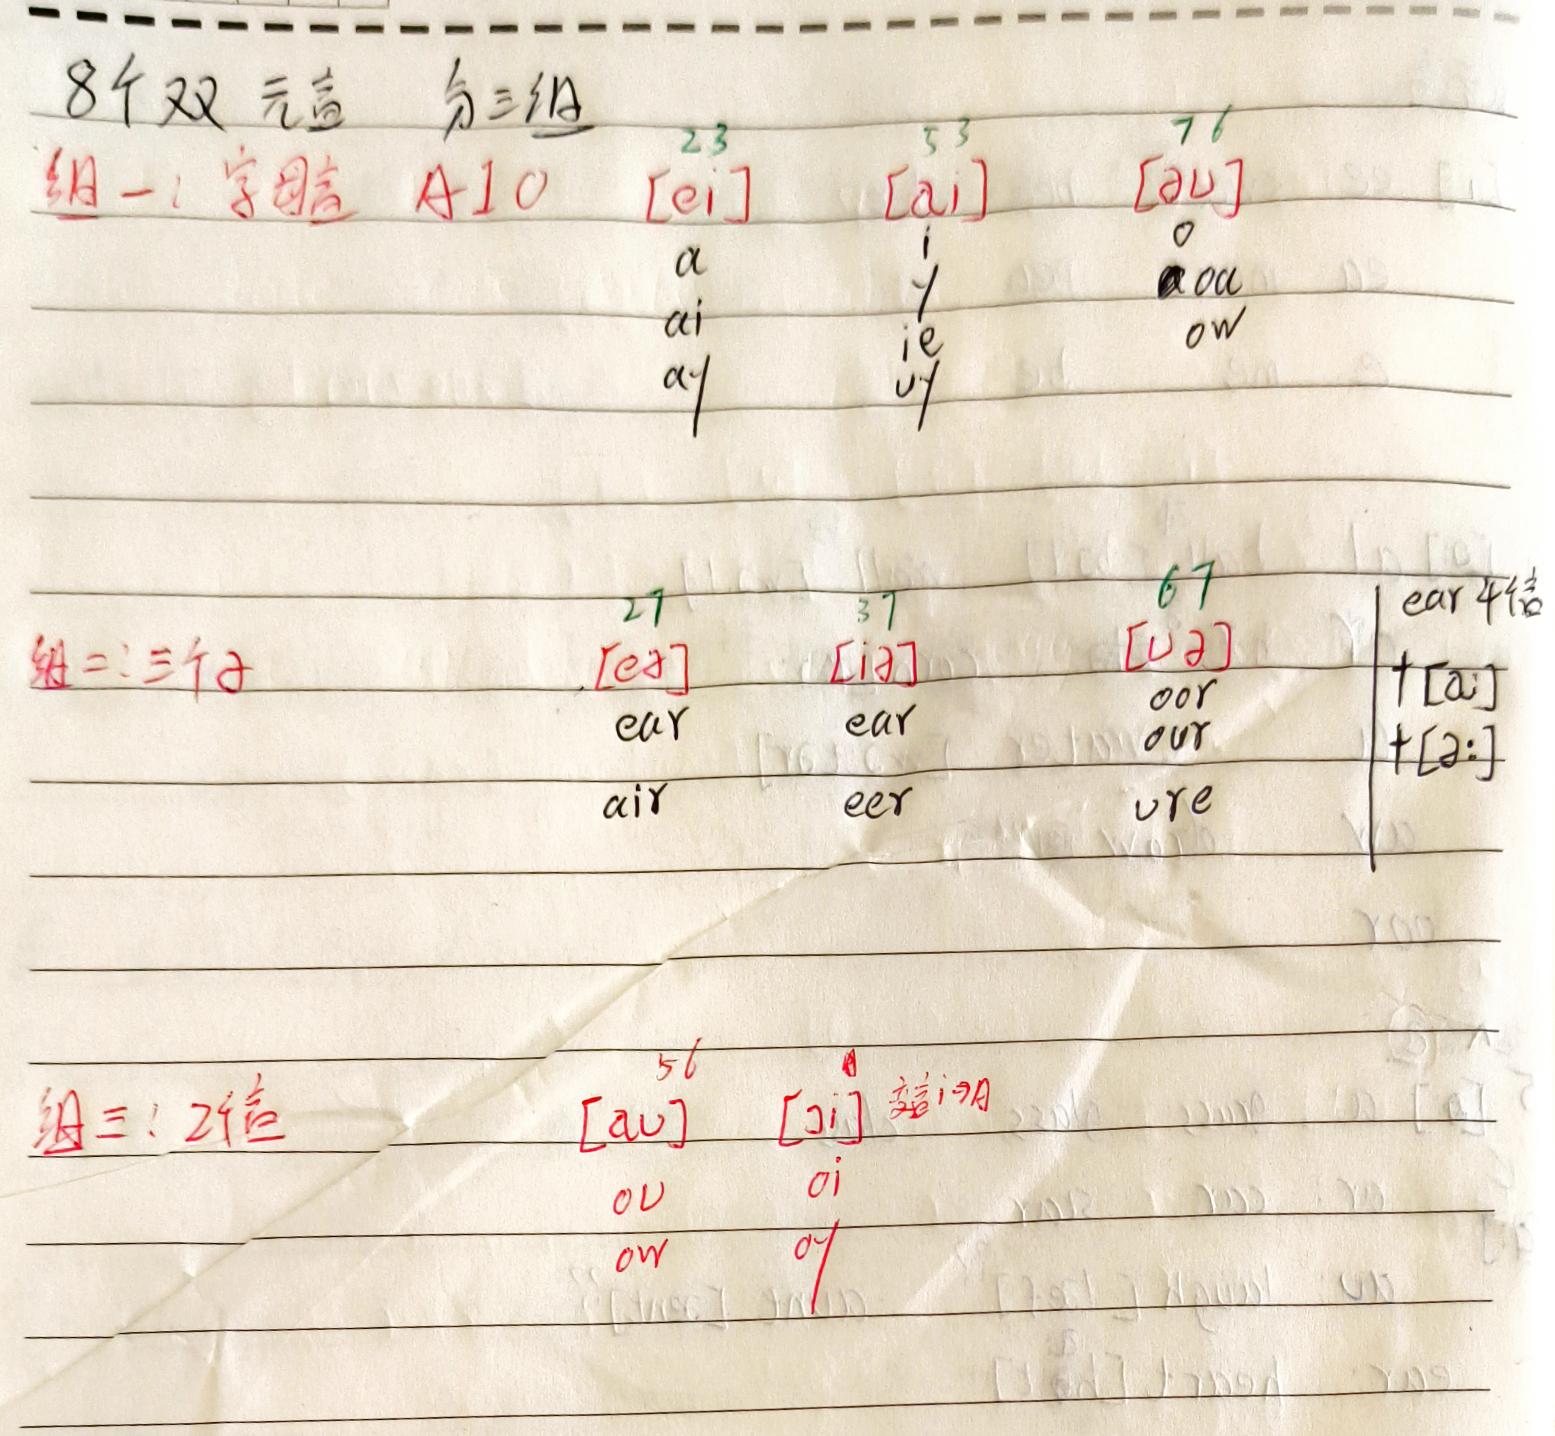 8个双元音 分三组
23 53 76
组一: 字母音 A I O [ei] [ai] [əu]
a i o
ai y oa
ay ie ow
uy
27 37 67
组二: 三个ə [eə] [iə] [uə]
ear ear oor
our
air eer ure
ear 4个音
+[a:]
+[ə:]
56
组三: 2个音 [au] [ɔi] 变音i→A
ou oi
ow oy